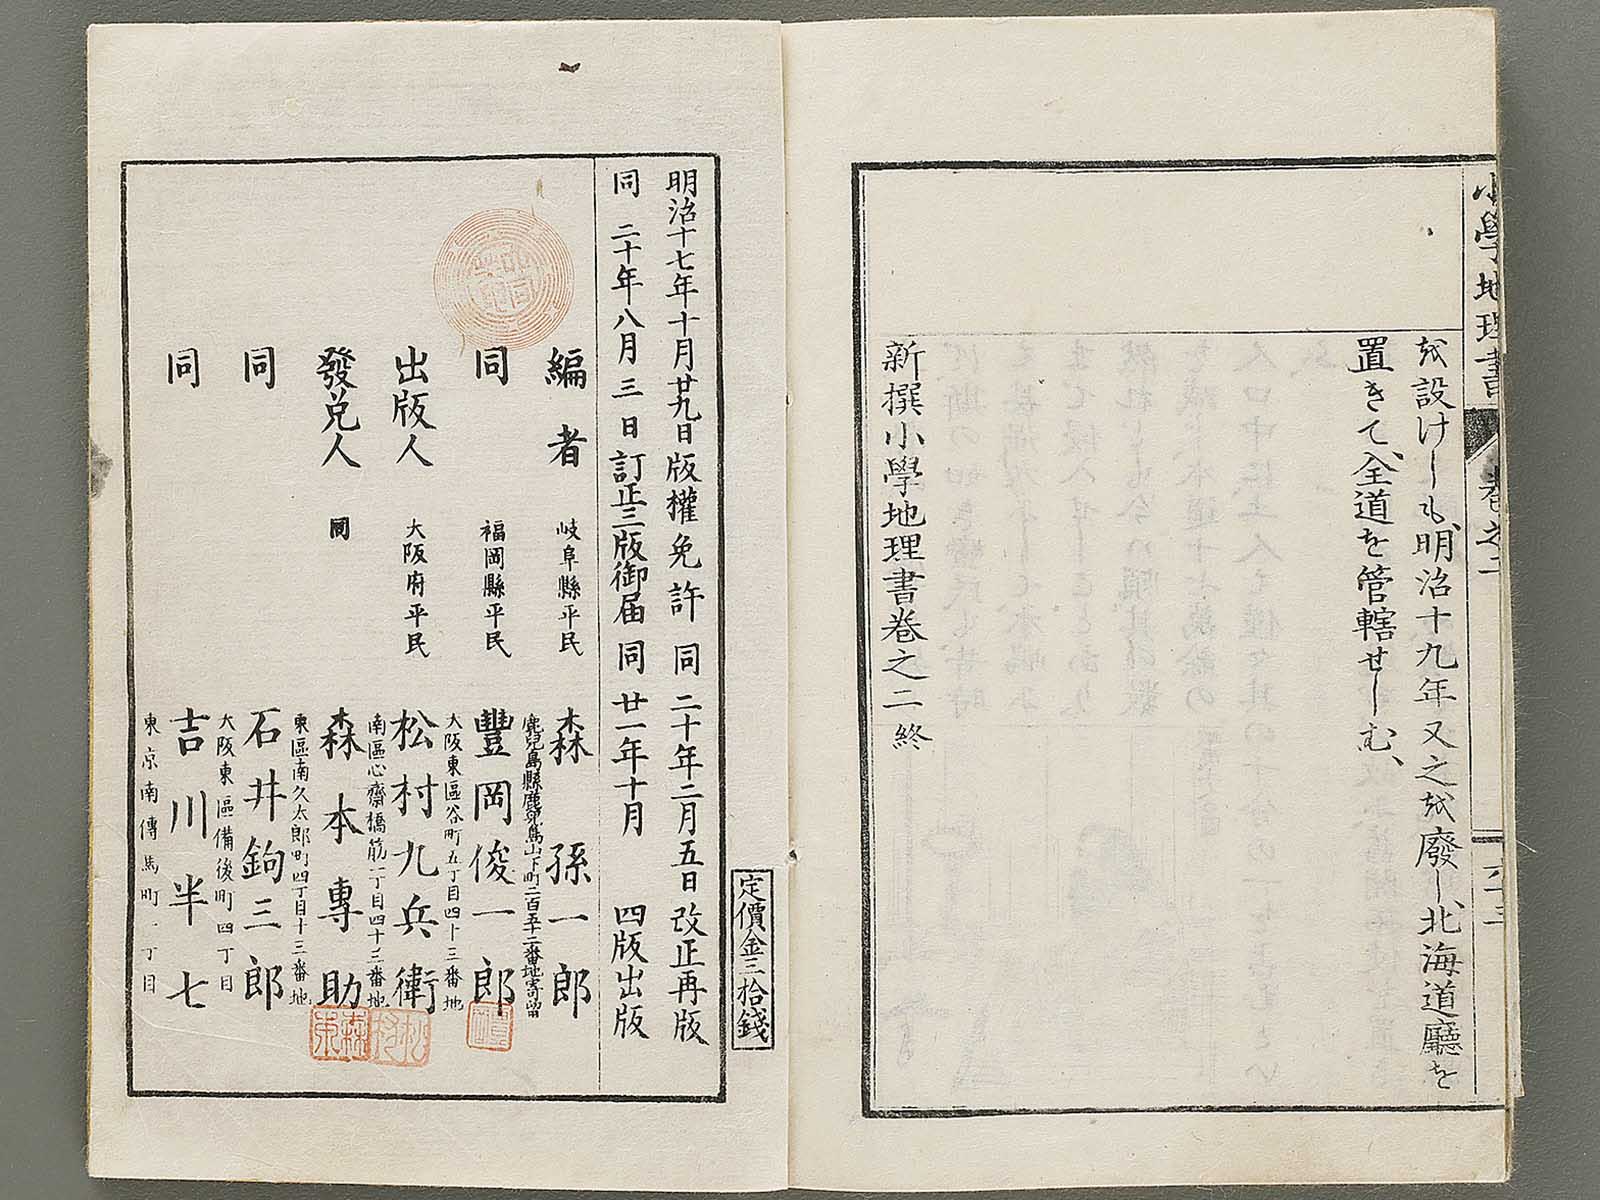 小學地理書
卷之二
六十三
を設けしも、明治十九年又之を廢し、北海道廳を
置きて、全道を管轄せしむ、
新撰小學地理書卷之二終
定價金三拾錢
明治十七年十月廿九日版權免許 同二十年二月五日改正再版
同 二十年八月三日訂正三版御届 同廿一年十月 四版出版
編者 岐阜縣平民 森孫一郎
鹿兒島縣鹿兒島山下町二百五十二番地寄留
同 福岡縣平民 豐岡俊一郎
大阪東區谷町五丁目四十三番地
出版人 大阪府平民 松村九兵衛
南區心齋橋筋一丁目四十三番地
發兌人 同 森本專助
東區南久太郎町四丁目十三番地
同 石井鉤三郎
大阪東區備後町四丁目
同 吉川半七
東京南傳馬町一丁目
豐岡
松村
森本